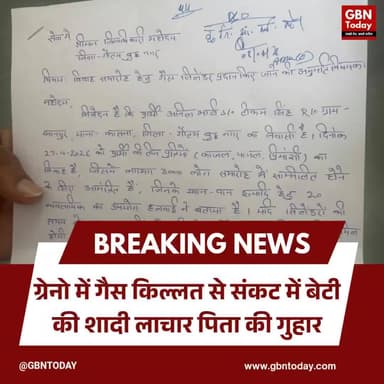 GBN
Today
सेवा में
श्रीमान जिलाधिकारी महोदय
जिला- गौतम बुद्ध नगर
विषय- विवाह समारोह हेतु गैस सिलेन्डर प्रदान किए जाने की अनुमति विषयक।
महोदय,
निवेदन है कि प्रार्थी अनिल भाटी S/o टीकम सिंह R/o ग्राम-
थाना- कासना, जिला- गौतम बुद्ध नगर का निवासी है। दिनांक
27-4-2026 को प्रार्थी की तीन पुत्रियों (काजल, पायल, हिमांशी) का
विवाह है, जिसमें लगभग 3000 लोग समारोह में सम्मिलित होने
के लिए आमंत्रित हैं, जिनके खान-पान इत्यादि हेतु 20
का उपयोग हलवाई ने बताया है। यदि सिलेन्डरों की
BREAKING NEWS
ग्रेनो में गैस किल्लत से संकट में बेटी
की शादी लाचार पिता की गुहार
@GBNTODAY
www.gbntoday.com